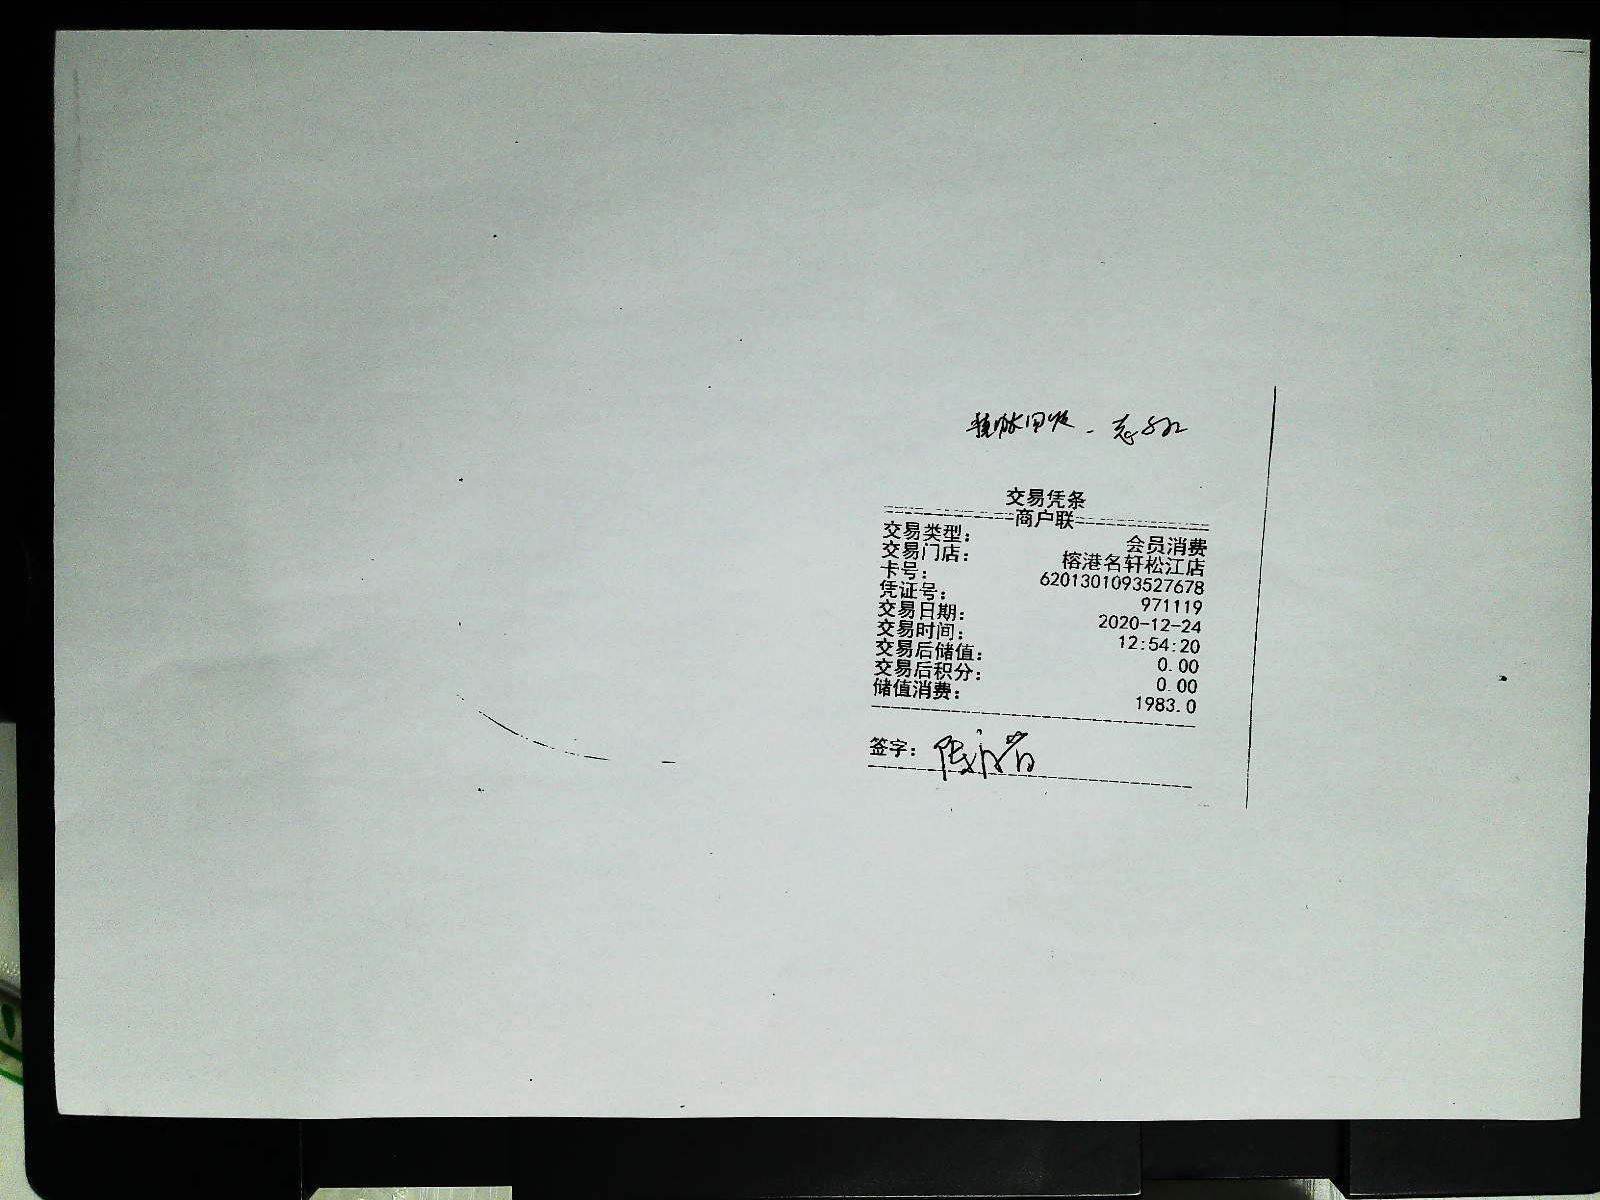 交易凭条
商户联
交易类型： 会员消费
交易门店： 榕港名轩松江店
卡号： 6201301093527678
凭证号： 971119
交易日期： 2020-12-24
交易时间： 12:54:20
交易后储值： 0.00
交易后积分： 0.00
储值消费： 1983.0
签字：